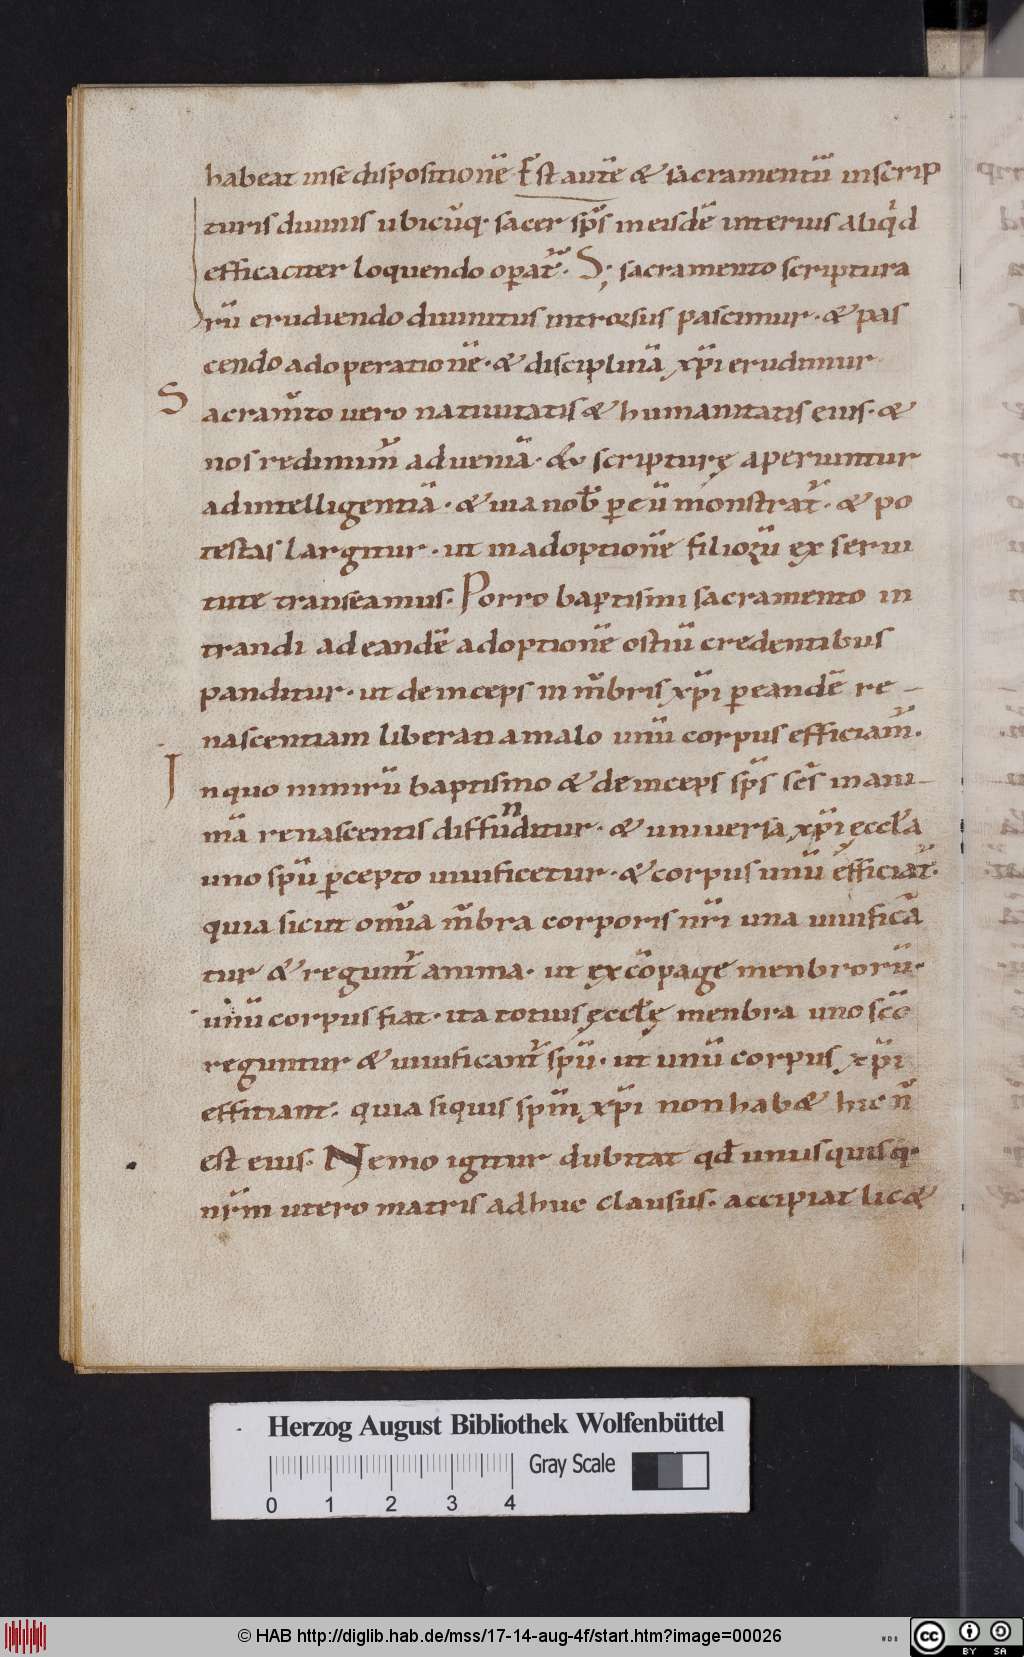 habeat inse dispositionē Est autē & sacramentū inscrip
turis diuinis ubicūq· sacer sp̄s ineisdē interius aliqd
efficaciter loquendo operat̄· S; sacramento scriptura
rū erudiendo diuinitus introrsus pascimur· & pas
cendo adoperationē· & disciplinā xp̄i erudimur
Sacram̄to uero natiuitatis & humanitatis eius· &
nos redimim̄ adueniā· & scripturę aperiuntur
adintelligentiā· & uia nob̄ p cū monstrat̄· & po
testas largitur· ut inadoptionē filiorū ex serui
tute transeamus· Porro baptismi sacramento in
trandi adeandē adoptionē ostiū credentibus
panditur· ut deinceps in m̄bris xp̄i peandē re
nascentiam liberati amalo unū corpus efficiam̄·
Inquo nimirū baptismo & deinceps sp̄s sc̄s in ani
mā renascentis diffunditur· & uniuersa xp̄i ęccl̄a
uno spū pcepto uiuificetur· & corpus unū efficiat̄·
quia sicut om̄ia m̄bra corporis nr̄i una uiuificā
tur & regunt̄ anima· ut ex cōpage menbrorū·
unū corpus fiat· ita totius ęccl̄ę menbra uno scō
reguntur & uiuificant̄ spū· ut unū corpus xp̄i
effitiant· quia siquis spm̄ xp̄i non hab& hic n̄
est eius· Nemo igitur dubitat qd̄ unusquisq·
nr̄m utero matris adhuc clausus· accipiat lic&
Herzog August Bibliothek Wolfenbüttel
Gray Scale
0 1 2 3 4
© HAB http://diglib.hab.de/mss/17-14-aug-4f/start.htm?image=00026
WDB
cc BY SA